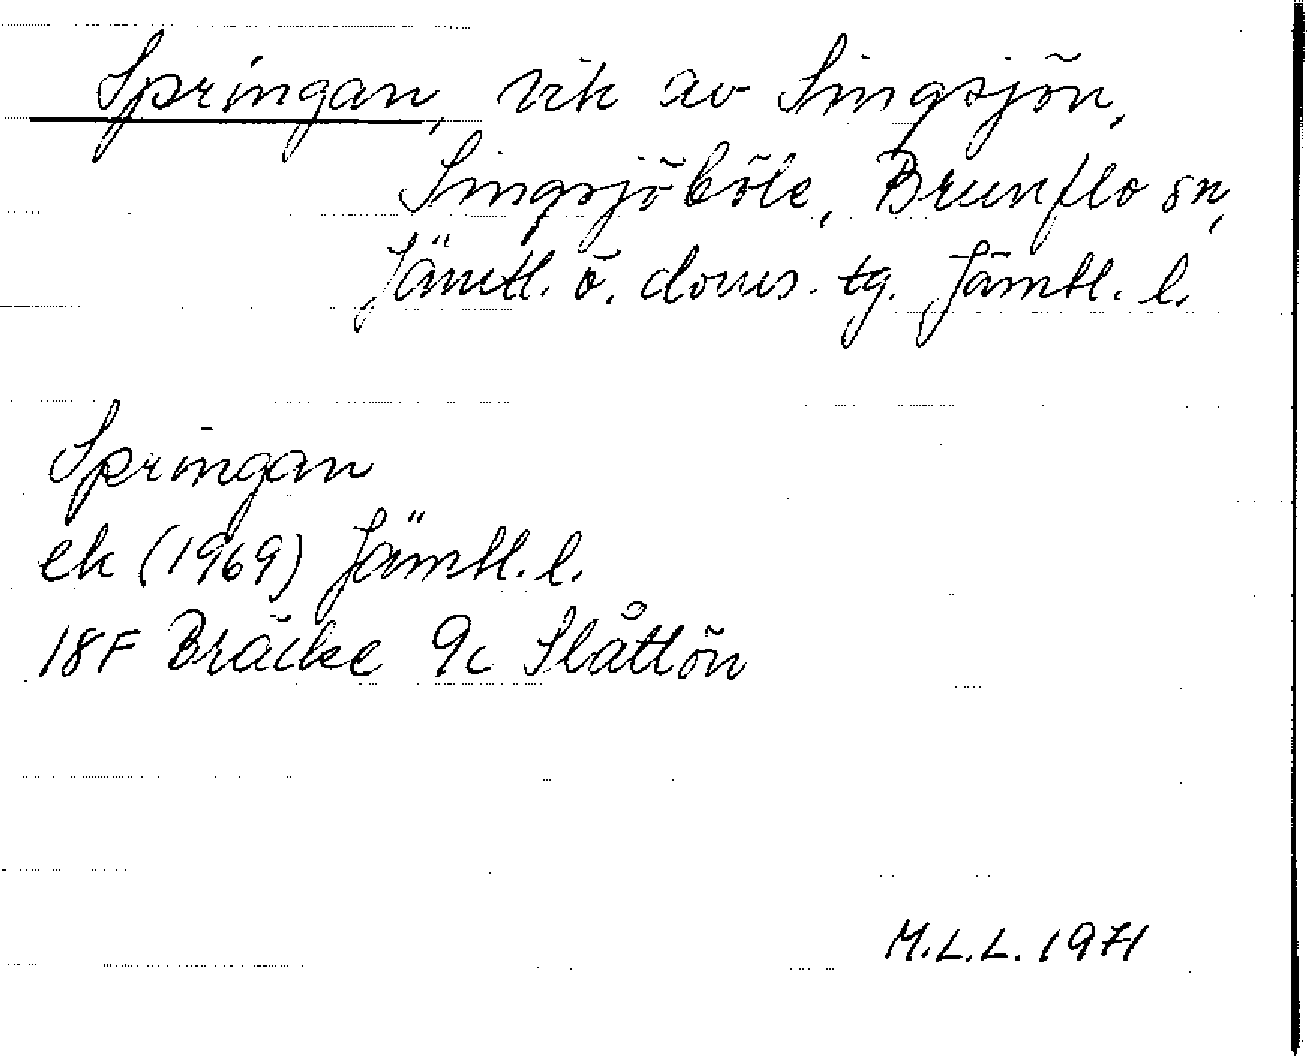 Springan, vik av Singsjön,
Singsjöböle, Brunflo sn,
Jämtl. ö. doms. tg. Jämtl. l.
Springan
ek (1969) Jämtl. l.
18F Bräcke 9c Slåttön
M.L.L. 1971